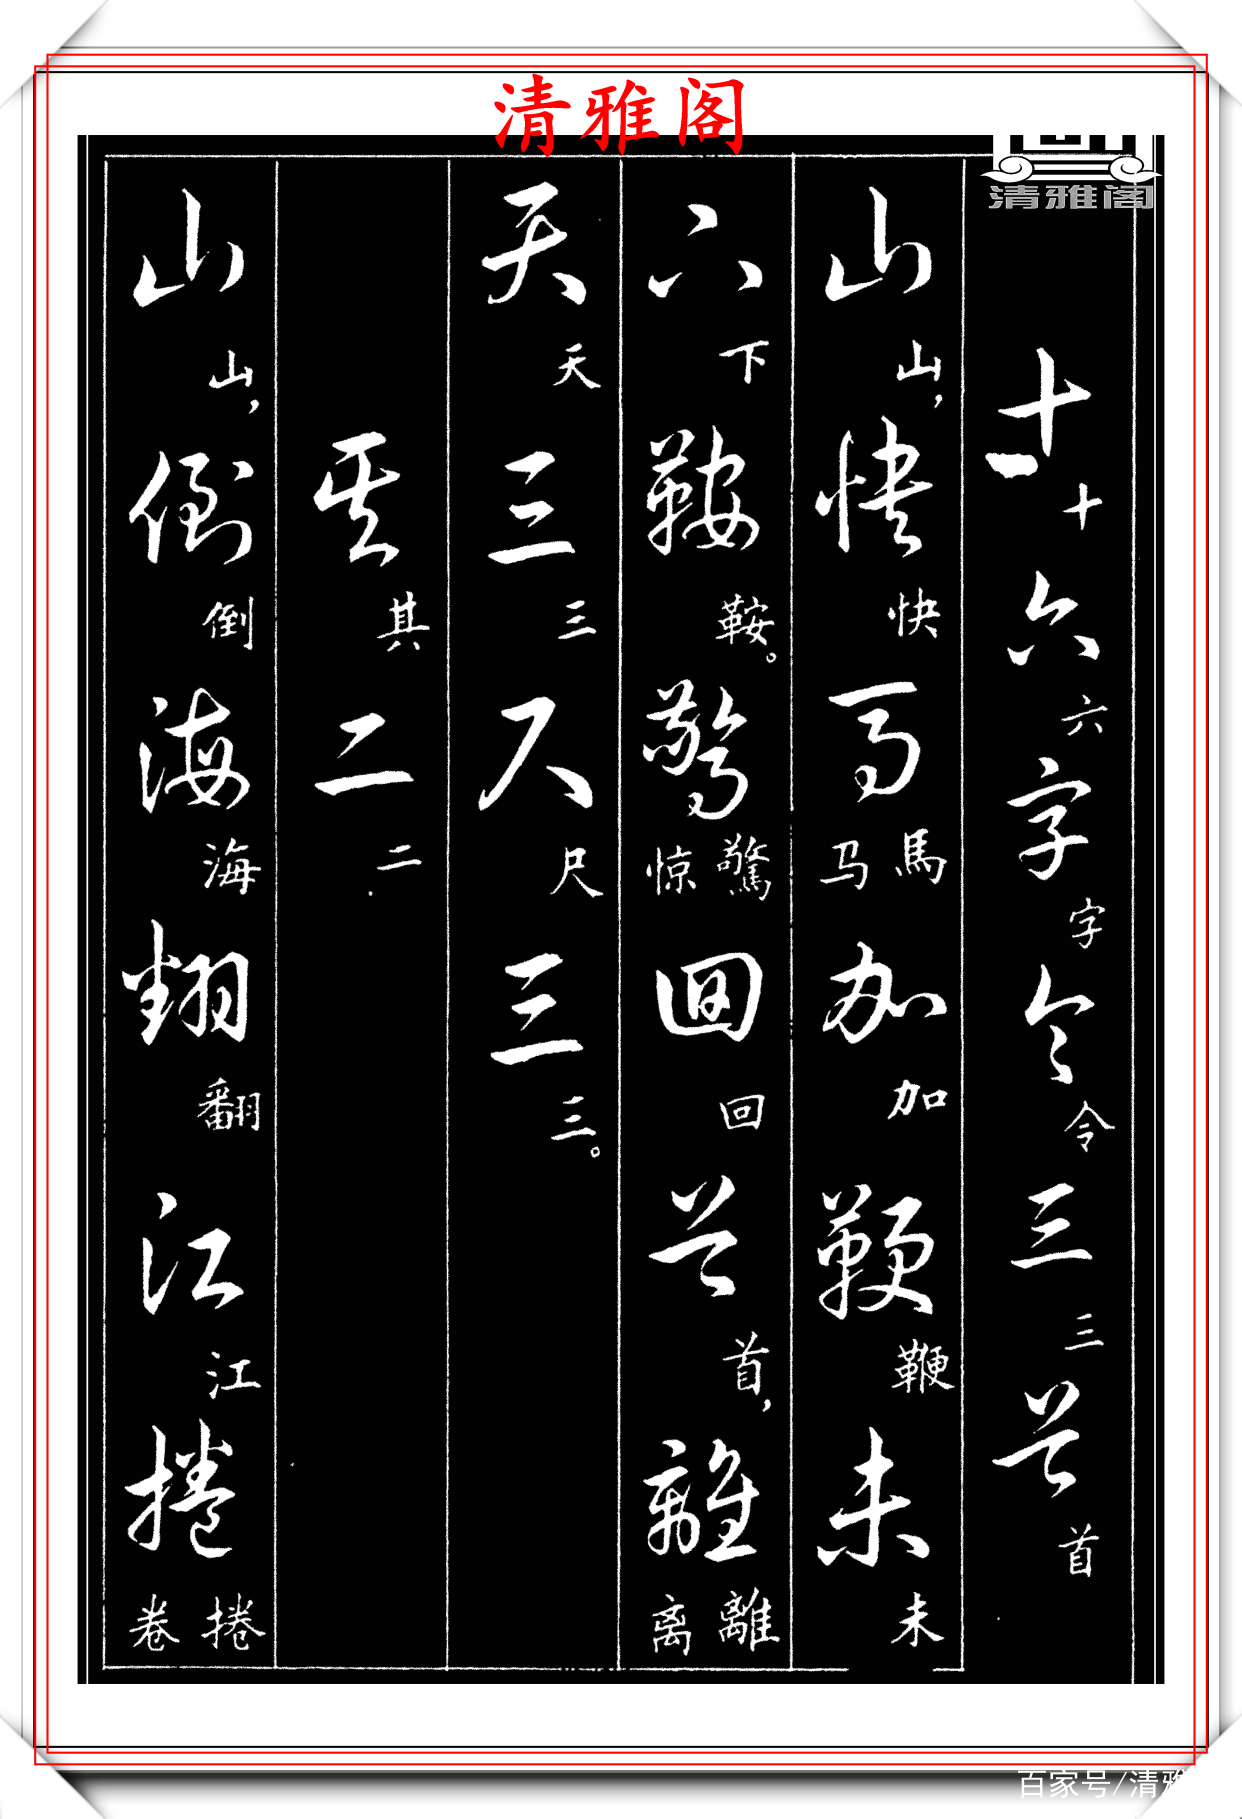 清雅阁
清雅阁
十十六六字字令令三三首首
山山，快快马馬马加加鞭鞭未未
下下鞍鞍。驚驚惊回回首首，離離离
天天三三尺尺三三。
其其二二
山山，倒倒海海翻翻江江捲捲卷
百家号/清雅